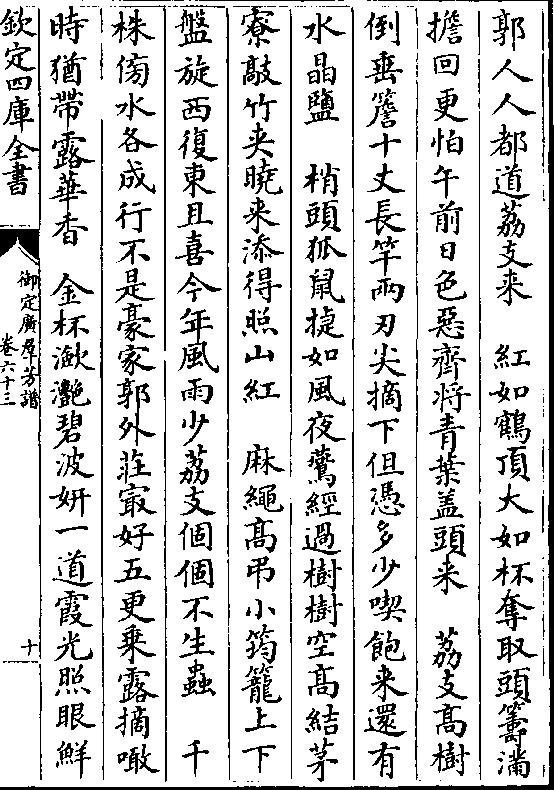 郭人人都道荔支来　紅如鶴頂大如杯奪取頭籌滿
擔回更怕午前日色惡齊将青葉盖頭来　荔支髙樹
倒垂簷十丈長竿兩刃尖摘下但憑多少喫飽来還有
水晶鹽　梢頭狐鼠捷如風夜鶯經過樹樹空髙結茅
寮敲竹夹曉来添得照山紅　麻繩髙弔小筠籠上下
盤旋西復東且喜今年風雨少荔支個個不生蟲　千
株傍水各成行不是豪家郭外莊㝡好五更乗露摘噉
時猶带露華香　金杯瀲灧碧波妍一道霞光照眼鮮
欽定四庫全書
御定廣羣芳譜
卷六十三
十